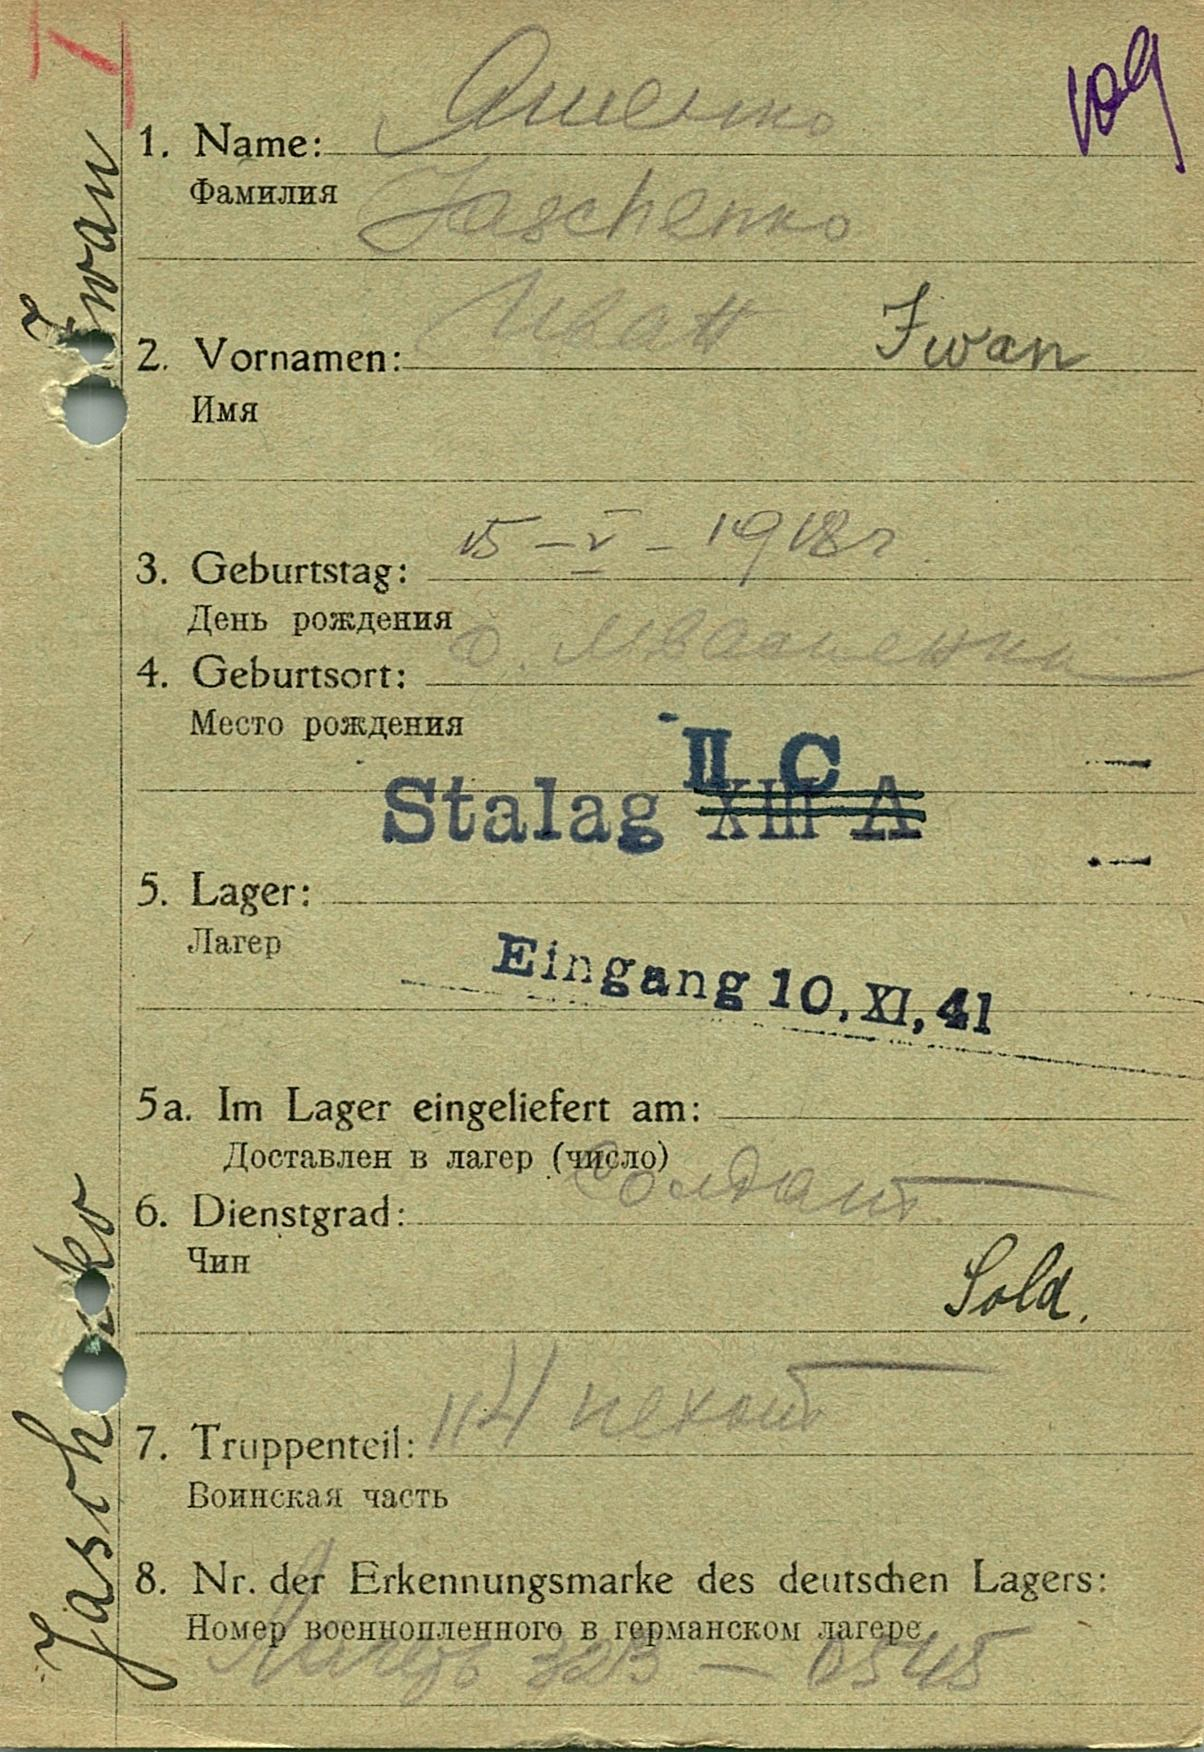 Яшенко
1. Name:
Фамилия
Jaschenko
Иван Iwan
2. Vornamen:
Имя
15 – V – 1918 г
3. Geburtstag:
День рождения
4. Geburtsort:
Место рождения
II C
Stalag XIII A
5. Lager:
Лагер
Eingang 10. XI. 41
5a. Im Lager eingeliefert am:
Доставлен в лагер (число)
Солдат
6. Dienstgrad:
Чин
Sold.
114 пехот
7. Truppenteil:
Воинская часть
8. Nr. der Erkennungsmarke des deutschen Lagers:
Номер военнопленного в германском лагере
Лагерь 32B –
Jaschenko Iwan